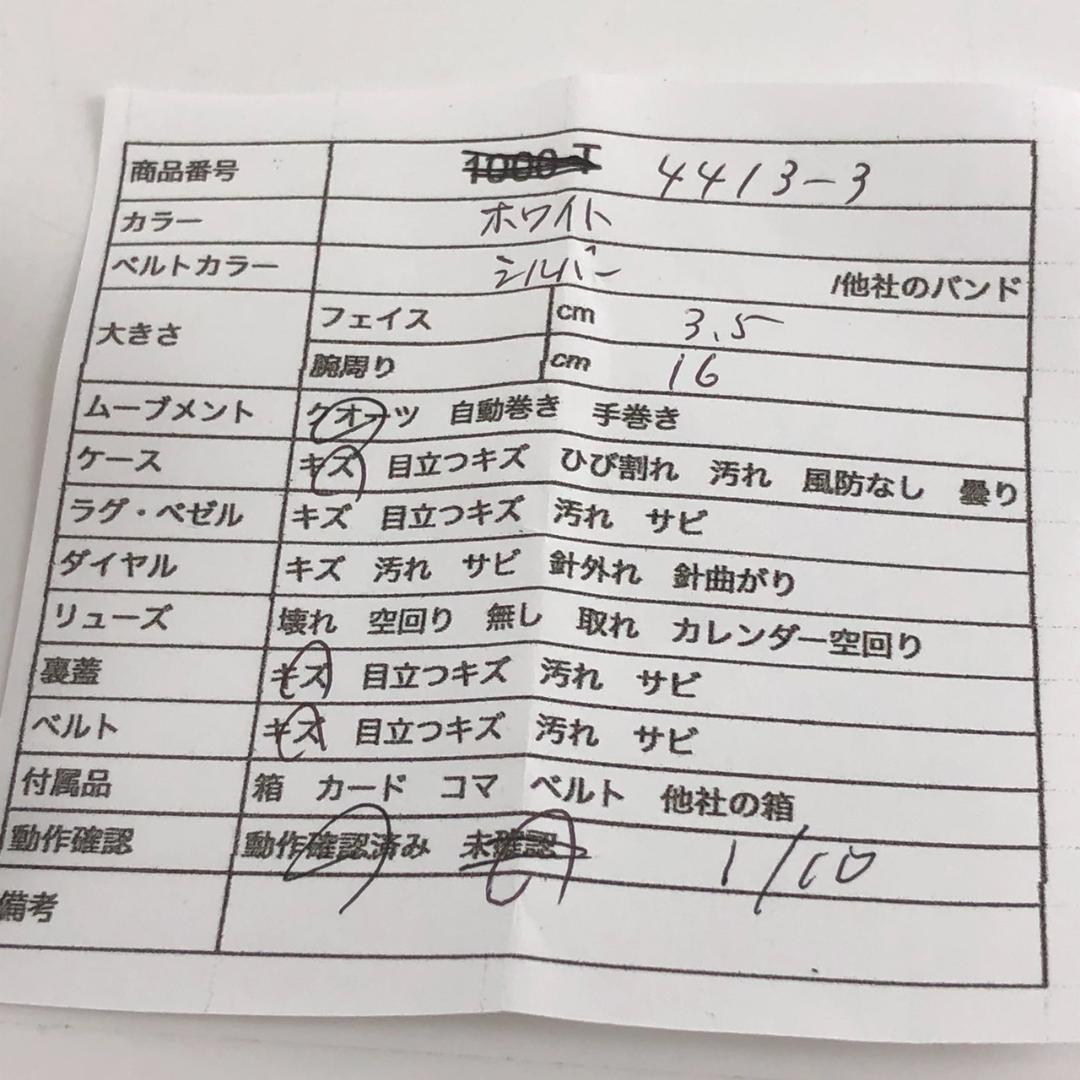 商品番号 1000-T 4413-3
カラー ホワイト
ベルトカラー シルバー /他社のバンド
大きさ フェイス cm 3.5
腕周り cm 16
ムーブメント クオーツ 自動巻き 手巻き
ケース キズ 目立つキズ ひび割れ 汚れ 風防なし 曇り
ラグ・ベゼル キズ 目立つキズ 汚れ サビ
ダイヤル キズ 汚れ サビ 針外れ 針曲がり
リューズ 壊れ 空回り 無し 取れ カレンダー空回り
裏蓋 キズ 目立つキズ 汚れ サビ
ベルト キズ 目立つキズ 汚れ サビ
付属品 箱 カード コマ ベルト 他社の箱
動作確認 動作確認済み 未確認 1/10
備考